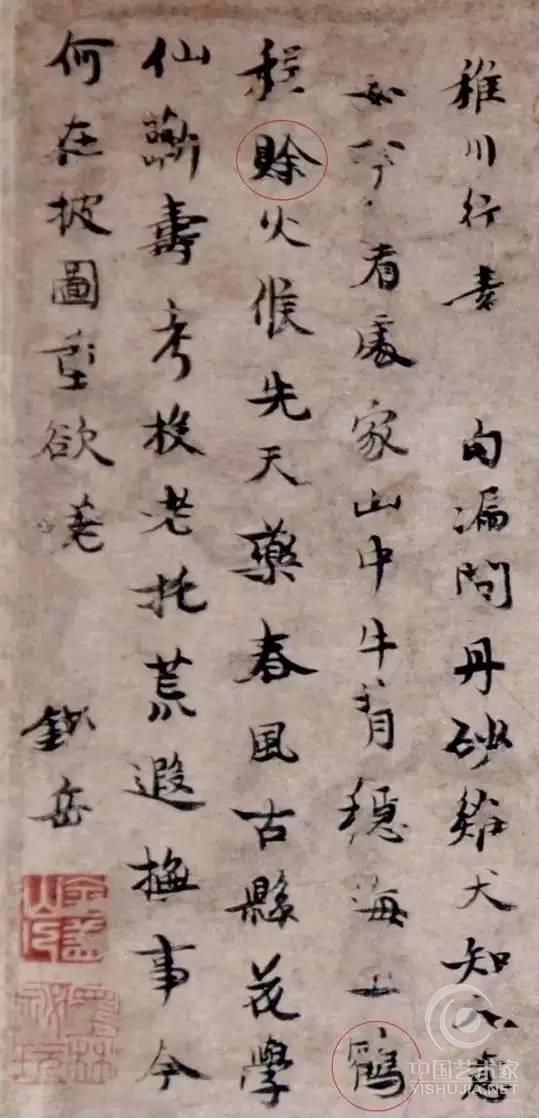 稚川行素 句漏問丹砂鷄犬知
如今看處家山中牛背穩海上鶴
程賒火候先天藥春風古縣花學
仙蘄壽考投老托荒遐撫事今
何在披圖重欲嗟 錢岳
中国艺术家
YISHUJIA.NET